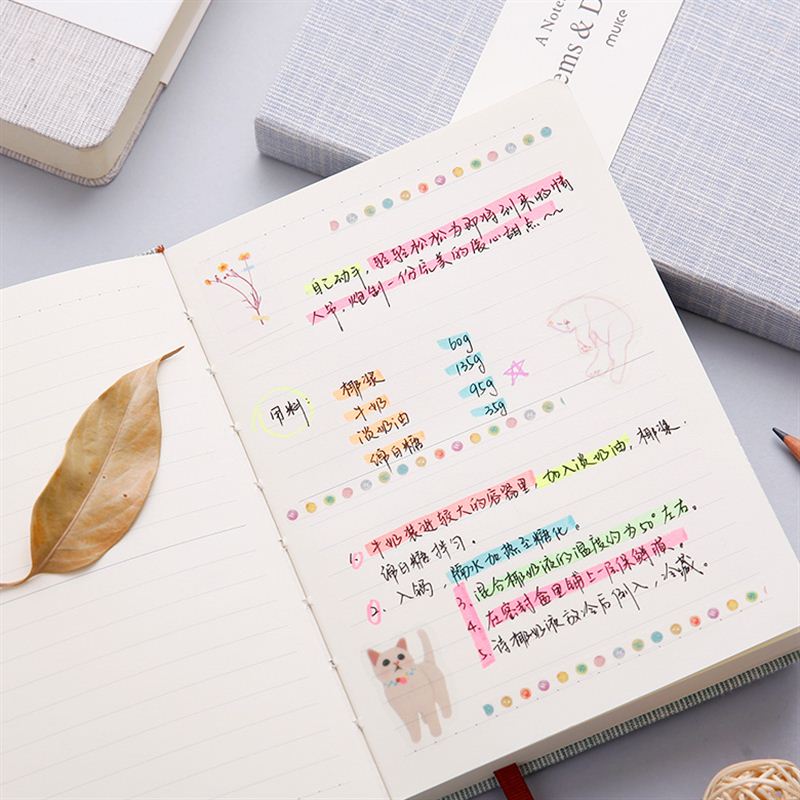 A Note
ems & D
muke
自己动手，轻轻松松为即将到来的情
人节，炮制一份完美的展心甜点~~
用料：
椰浆 60g
牛奶 135g
淡奶油 95g
绵白糖 35g
1. 牛奶装进较大的容器里，加入淡奶油，椰浆，
绵白糖拌匀。
2. 入锅，隔水加热至糖化。
3. 混合椰奶液的温度约为50°左右。
4. 在密封盒里铺上一层保鲜膜。
5. 待椰奶液放冷后倒入，冷藏。